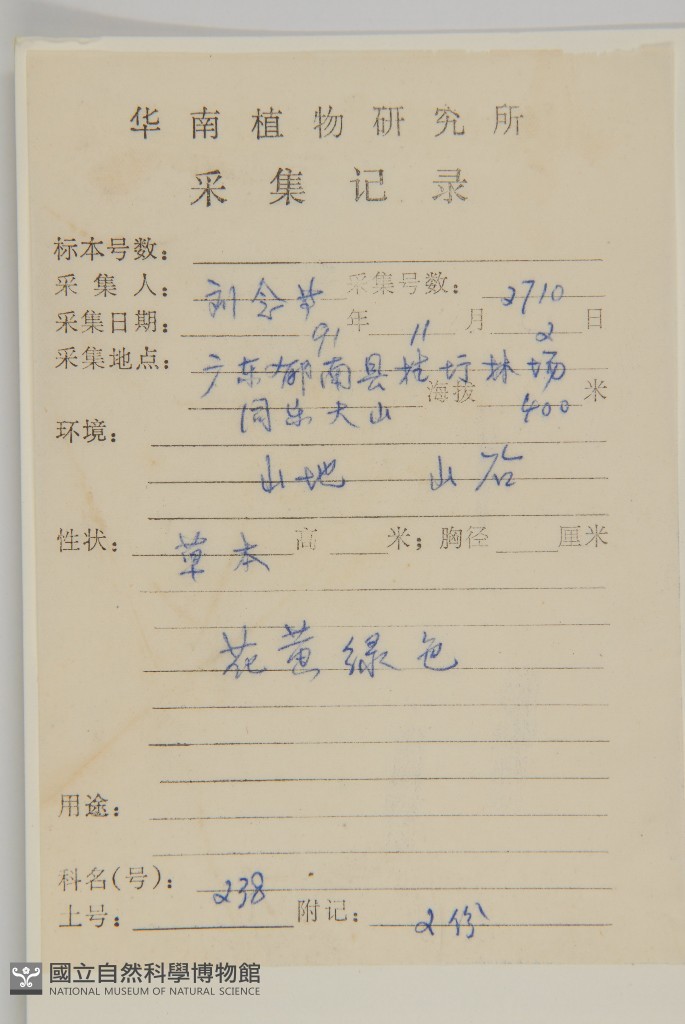 华南植物研究所
采集记录
标本号数：
采集人：刘念 采集号数：2710
采集日期：91年11月2日
采集地点：广东郁南县桂圩林场
同乐大山 海拔400米
环境：
山地 山石
性状：草本 高 米；胸径 厘米
花黄绿色
用途：
科名(号)：238
土号： 附记：2份
國立自然科學博物館
NATIONAL MUSEUM OF NATURAL SCIENCE